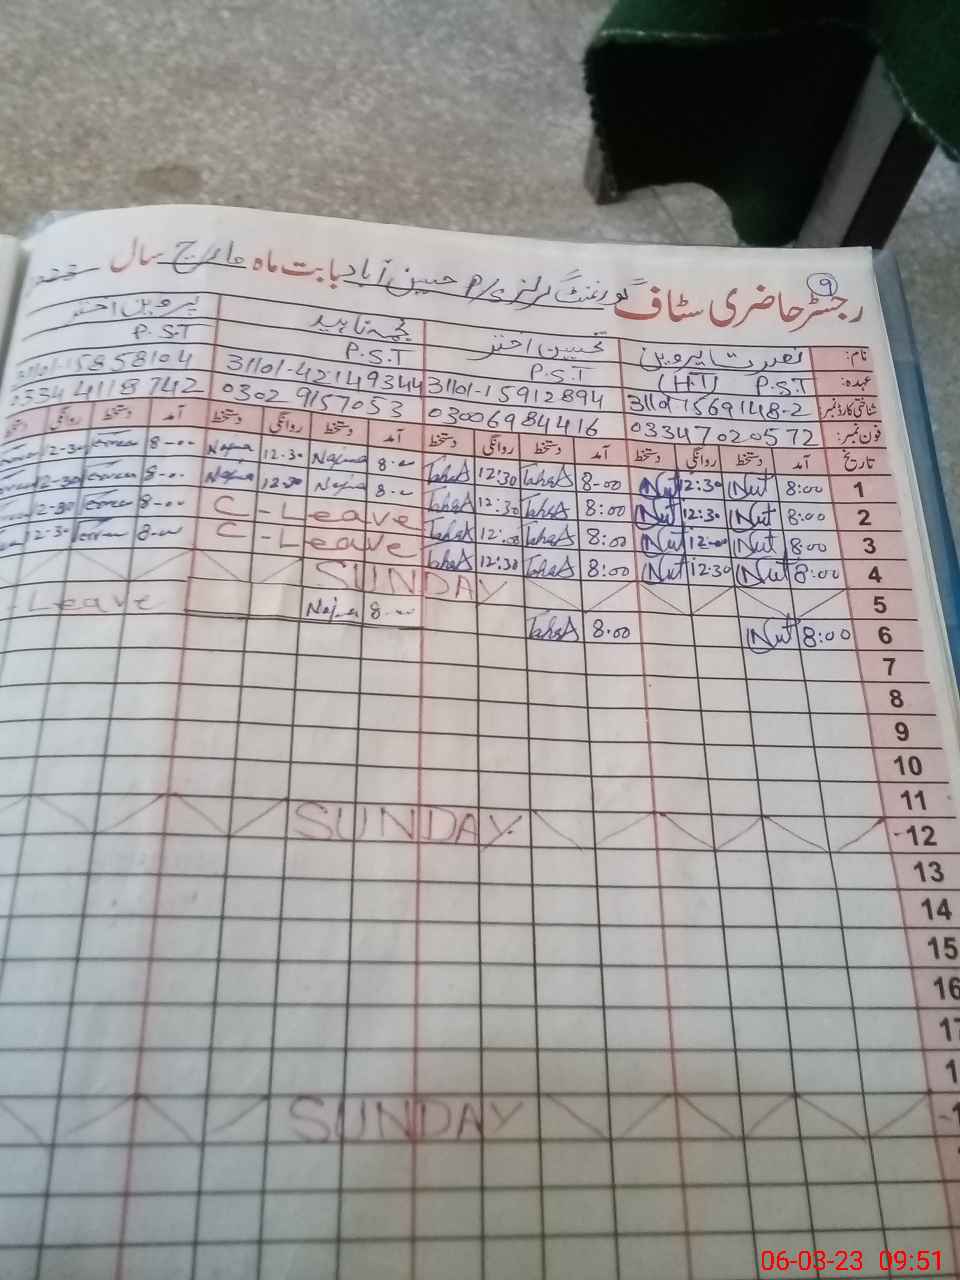 ۹
رجسٹر حاضری سٹاف گورنمنٹ گرلز P/S حسین آباد بابت ماہ مارچ سال
نام: نصرت پروین تحسین اختر نجمہ ناہید پروین اختر
عہدہ: P.S.T (H.T) P.S.T P.S.T P.S.T
شناختی کارڈ نمبر: 31101-1569148-2 31101-15912894 31101-42149344 31101-15858104
فون نمبر: 03347020572 03006984416 0302 9157053 0334 4118742
تاریخ آمد دستخط روانگی دستخط آمد دستخط روانگی دستخط آمد دستخط روانگی دستخط آمد دستخط روانگی دستخط
1 8:00 Nut 12:30 Nut 8-00 TahsA 12:30 TahsA 8-00 Najma 12-30 Najma 8-00 12-30
2 8:00 Nut 12:30 Nut 8:00 TahsA 12:30 TahsA 8-00 Najma 12-30 Najma 8-00 12-30
3 8:00 Nut 12-00 Nut 8:00 TahsA 12:00 TahsA C-Leave 8-00
4 8:00 Nut 12:30 Nut 8:00 TahsA 12:30 TahsA C-Leave 8-00 12-30
5 SUNDAY
6 8:00 Nut 8:00 TahsA 8-00 Najma -Leave
7
8
9
10
11
12 SUNDAY
13
14
15
16
17
1
1 SUNDAY
06-03-23 09:51